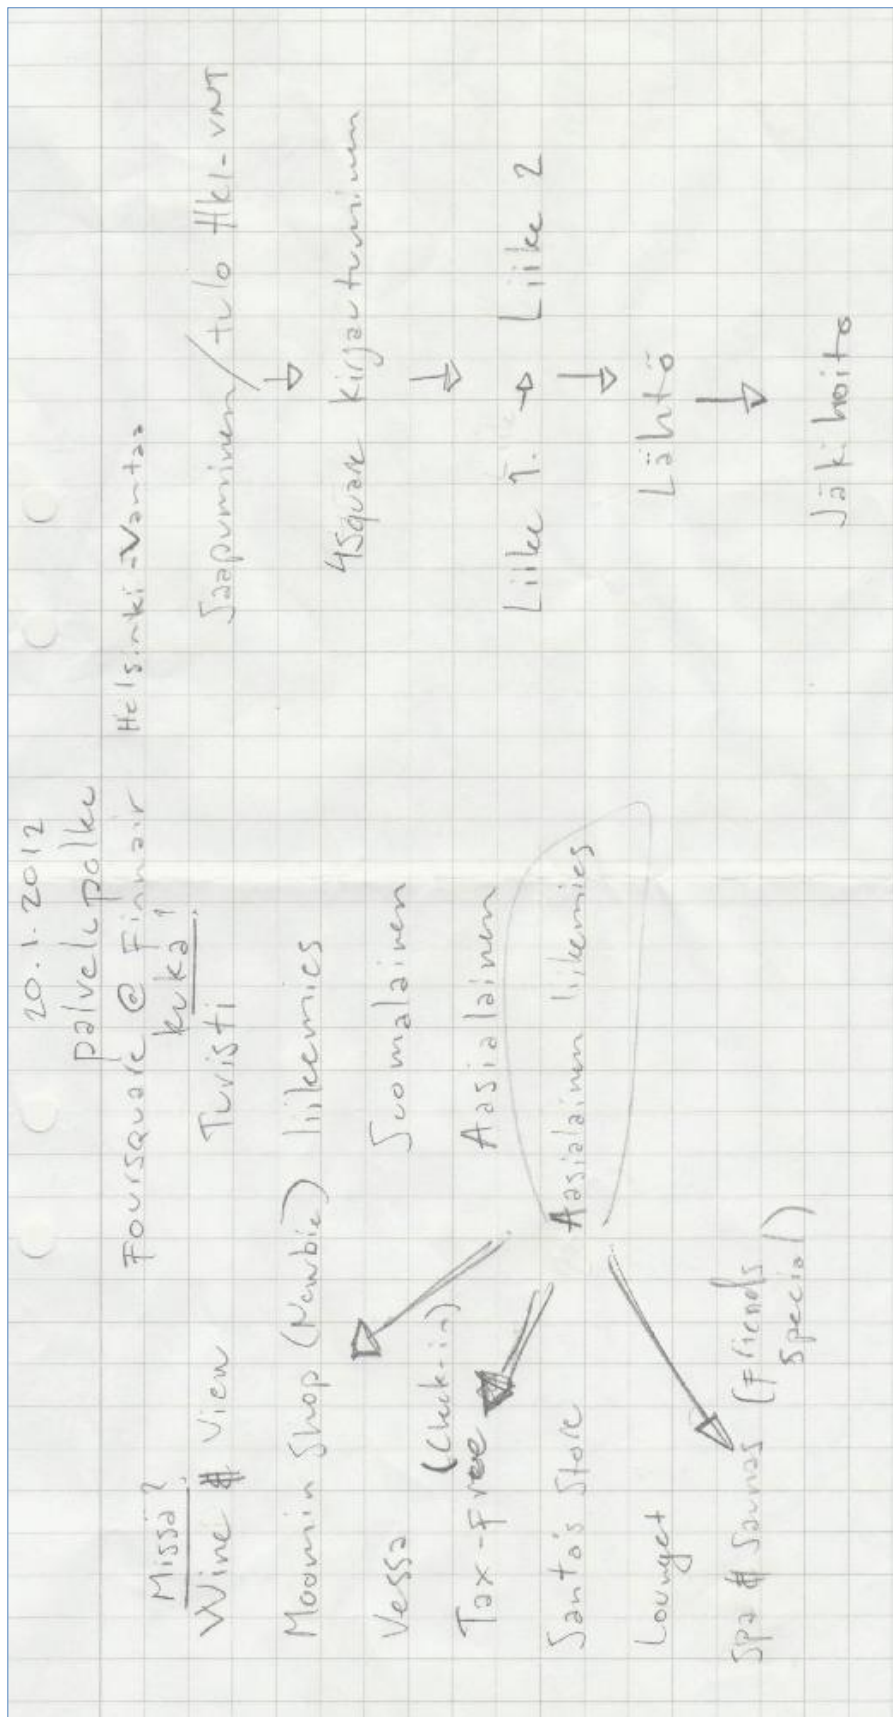 20.1.2012
palvelupolku
Foursquare @ Finnair Helsinki-Vantaa
Missä?
Wine & View
Moomin Shop (Newbie)
Vessa
(Check-in)
Tax-Free
Santa's Store
Lounget
Spa & Saunas (Friends
Special)
kuka?
Turisti
liikemies
Suomalainen
Aasialainen
Aasialainen liikemies
Saapuminen/tulo Hki-VNT
4Square kirjautuminen
Liike 1. → Liike 2
Lähtö
Jälkihoito